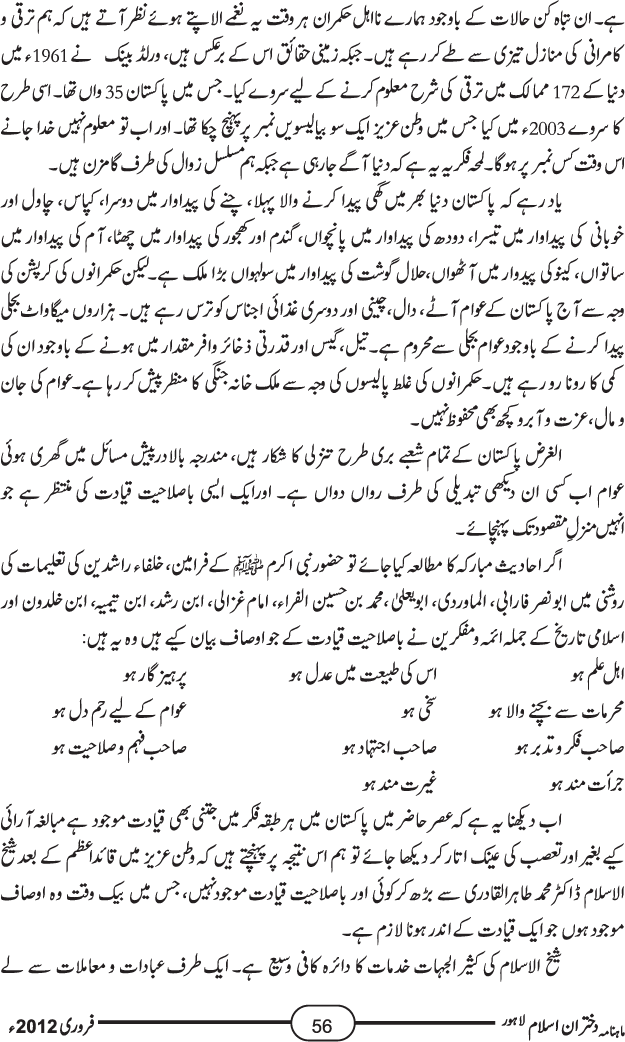 ہے۔ ان تباہ کن حالات کے باوجود ہمارے نااہل حکمران ہر وقت یہ نغمے الاپتے ہوئے نظر آتے ہیں کہ ہم ترقی و
کامرانی کی منازل تیزی سے طے کر رہے ہیں۔ جبکہ زمینی حقائق اس کے برعکس ہیں، ورلڈ بینک نے 1961ء میں
دنیا کے 172 ممالک میں ترقی کی شرح معلوم کرنے کے لیے سروے کیا۔ جس میں پاکستان 35 واں تھا۔ اسی طرح
کا سروے 2003ء میں کیا جس میں وطن عزیز ایک سو بیالیسویں نمبر پر پہنچ چکا تھا۔ اور اب تو معلوم نہیں خدا جانے
اس وقت کس نمبر پر ہوگا۔ لمحہ فکریہ یہ ہے کہ دنیا آگے جارہی ہے جبکہ ہم مسلسل زوال کی طرف گامزن ہیں۔
یاد رہے کہ پاکستان دنیا بھر میں گھی پیدا کرنے والا پہلا، چنے کی پیداوار میں دوسرا، کپاس، چاول اور
خوبانی کی پیداوار میں تیسرا، دودھ کی پیداوار میں پانچواں، گندم اور کھجور کی پیداوار میں چھٹا، آم کی پیداوار میں
ساتواں، کینو کی پیدوار میں آٹھواں، حلال گوشت کی پیداوار میں سولہواں بڑا ملک ہے۔ لیکن حکمرانوں کی کرپشن کی
وجہ سے آج پاکستان کے عوام آٹے، دال، چینی اور دوسری غذائی اجناس کو ترس رہے ہیں۔ ہزاروں میگاواٹ بجلی
پیدا کرنے کے باوجود عوام بجلی سے محروم ہے۔ تیل، گیس اور قدرتی ذخائر وافر مقدار میں ہونے کے باوجود ان کی
کمی کا رونا رو رہے ہیں۔ حکمرانوں کی غلط پالیسوں کی وجہ سے ملک خانہ جنگی کا منظر پیش کر رہا ہے۔ عوام کی جان
و مال، عزت و آبرو کچھ بھی محفوظ نہیں۔
الغرض پاکستان کے تمام شعبے بری طرح تنزلی کا شکار ہیں، مندرجہ بالا درپیش مسائل میں گھری ہوئی
عوام اب کسی ان دیکھی تبدیلی کی طرف رواں دواں ہے۔ اور ایک ایسی باصلاحیت قیادت کی منتظر ہے جو
انہیں منزلِ مقصود تک پہنچائے۔
اگر احادیث مبارکہ کا مطالعہ کیا جائے تو حضور نبی اکرم ﷺ کے فرامین، خلفاء راشدین کی تعلیمات کی
روشنی میں ابونصر فارابی، الماوردی، ابویعلیٰ، محمد بن حسین الفراء، امام غزالی، ابن رشد، ابن تیمیہ، ابن خلدون اور
اسلامی تاریخ کے جملہ ائمہ و مفکرین نے باصلاحیت قیادت کے جو اوصاف بیان کیے ہیں وہ یہ ہیں:
اہل علم ہو اس کی طبیعت میں عدل ہو پرہیز گار ہو
محرمات سے بچنے والا ہو سخی ہو عوام کے لیے رحم دل ہو
صاحب فکر و تدبر ہو صاحب اجتہاد ہو صاحب فہم و صلاحیت ہو
جرأت مند ہو غیرت مند ہو
اب دیکھنا یہ ہے کہ عصر حاضر میں پاکستان میں ہر طبقہ فکر میں جتنی بھی قیادت موجود ہے مبالغہ آرائی
کیے بغیر اور تعصب کی عینک اتار کر دیکھا جائے تو ہم اس نتیجہ پر پہنچتے ہیں کہ وطن عزیز میں قائداعظم کے بعد شیخ
الاسلام ڈاکٹر محمد طاہرالقادری سے بڑھ کر کوئی اور باصلاحیت قیادت موجود نہیں، جس میں بیک وقت وہ اوصاف
موجود ہوں جو ایک قیادت کے اندر ہونا لازم ہے۔
شیخ الاسلام کی کثیر الجہات خدمات کا دائرہ کافی وسیع ہے۔ ایک طرف عبادات و معاملات سے لے
ماہنامہ دختران اسلام لاہور 56 فروری 2012ء